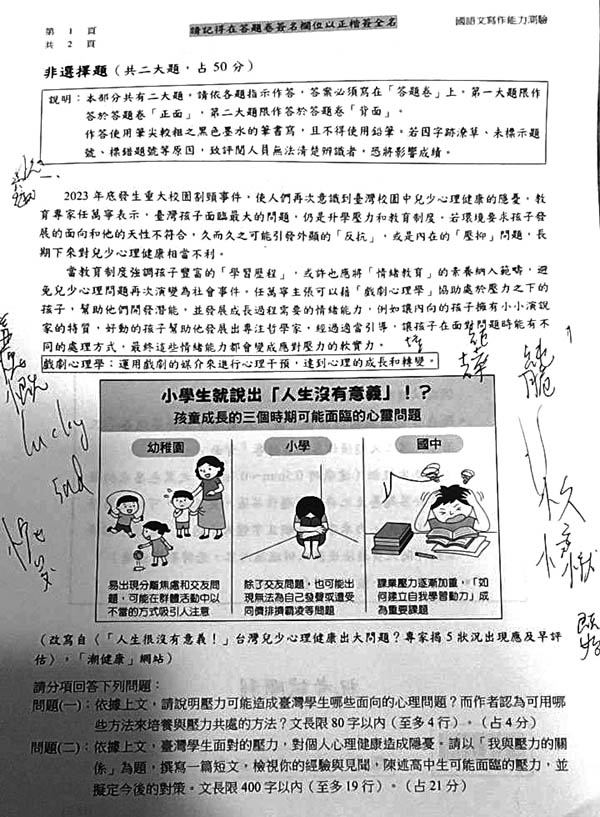 第 1 頁
共 2 頁
請記得在答題卷簽名欄位以正楷簽全名
國語文寫作能力測驗
非選擇題（共二大題，占 50 分）
說明：本部分共有二大題，請依各題指示作答，答案必須寫在「答題卷」上，第一大題限作
答於答題卷「正面」，第二大題限作答於答題卷「背面」。
作答使用筆尖較粗之黑色墨水的筆書寫，且不得使用鉛筆。若因字跡潦草、未標示題
號、標錯題號等原因，致評閱人員無法清楚辨識者，恐將影響成績。
2023 年底發生重大校園割頸事件，使人們再次意識到臺灣校園中兒少心理健康的隱憂。教
育專家任萬寧表示，臺灣孩子面臨最大的問題，仍是升學壓力和教育制度。若環境要求孩子發
展的面向和他的天性不符合，久而久之可能引發外顯的「反抗」，或是內在的「壓抑」問題，長
期下來對兒少心理健康相當不利。
當教育制度強調孩子豐富的「學習歷程」，或許也應將「情緒教育」的素養納入範疇，避
免兒少心理問題再次演變為社會事件。任萬寧主張可以藉「戲劇心理學」協助處於壓力之下的
孩子，幫助他們開發潛能，並發展成長過程需要的情緒能力，例如讓內向的孩子擁有小小演說
家的特質，好動的孩子幫助他發展出專注哲學家，經過適當引導，讓孩子在面對問題時能有不
同的處理方式，最終這些情緒能力都會變成應對壓力的軟實力。
戲劇心理學：運用戲劇的媒介來進行心理干預，達到心理的成長和轉變。
lucky
sad
小學生就說出「人生沒有意義」！？
孩童成長的三個時期可能面臨的心靈問題
幼稚園
小學
國中
易出現分離焦慮和交友問
題，可能在群體活動中以
不當的方式吸引人注意
除了交友問題，也可能出
現無法為自己發聲或遭受
同儕排擠霸凌等問題
課業壓力逐漸加重，「如
何建立自我學習動力」成
為重要課題
（改寫自〈「人生很沒有意義！」台灣兒少心理健康出大問題？專家揭 5 狀況出現應及早評
估〉，「潮健康」網站）
請分項回答下列問題：
問題(一)：依據上文，請說明壓力可能造成臺灣學生哪些面向的心理問題？而作者認為可用哪
些方法來培養與壓力共處的方法？文長限 80 字以內（至多 4 行）。（占 4 分）
問題(二)：依據上文，臺灣學生面對的壓力，對個人心理健康造成隱憂。請以「我與壓力的關
係」為題，撰寫一篇短文，檢視你的經驗與見聞，陳述高中生可能面臨的壓力，並
擬定今後的對策。文長限 400 字以內（至多 19 行）。（占 21 分）